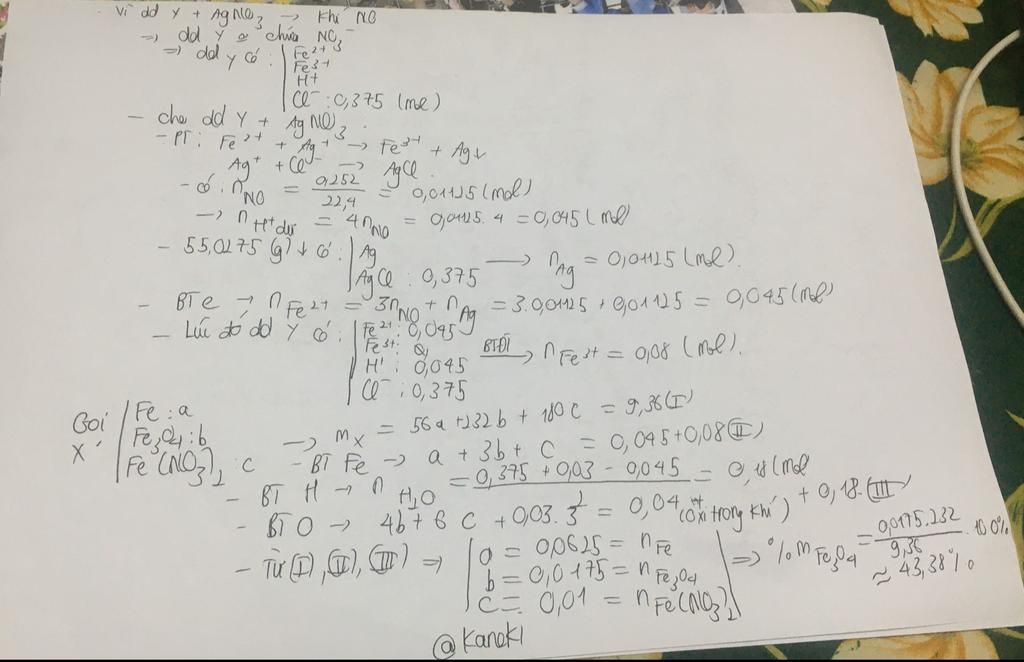 Vì dd Y + AgNO3 → khí NO
⇒ dd Y chứa NO3-
⇒ dd Y có: Fe2+
Fe3+
H+
Cl- : 0,375 (mol)
- cho dd Y + AgNO3.
- PT: Fe2+ + Ag+ → Fe3+ + Ag↓
Ag+ + Cl- → AgCl
- có: nNO = 0,252/22,4 = 0,01125 (mol)
→ nH+dư = 4nNO = 0,01125.4 = 0,045 (mol
- 55,0275 (g)↓ có: Ag
AgCl : 0,375 → nAg = 0,01125 (mol).
- BTe → nFe2+ = 3nNO + nAg = 3.0,01125 + 0,01125 = 0,045 (mol)
- Lúc đó dd Y có: Fe2+: 0,045
Fe3+:
H+ : 0,045
Cl- : 0,375
BTĐT → nFe3+ = 0,08 (mol).
Gọi X
Fe : a
Fe3O4 : b
Fe(NO3)2 : c
→ mX = 56a + 232b + 180c = 9,36 (I)
- BT Fe → a + 3b + c = 0,045 + 0,08 (II)
- BT H → nH2O = (0,375 + 0,03 - 0,045)/2 = 0,18 (mol
- BT O → 4b + 6c + 0,03.3 = 0,04 (oxi trong khí) + 0,18. (III)
- Từ (I), (II), (III) ⇒ a = 0,0625 = nFe
b = 0,0175 = nFe3O4
c = 0,01 = nFe(NO3)2
⇒ %mFe3O4 = 0,0175.232/9,36 . 100%
≈ 43,38%
@Kaneki